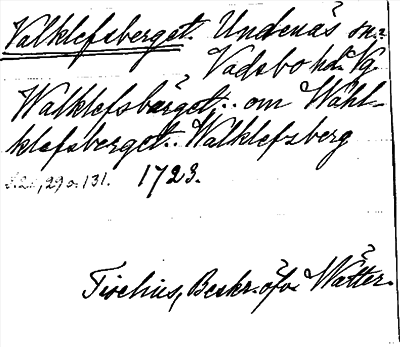 Valklefsberget. Undenäs sn.
Vadsbo hd. Vg
Walklefsbärget.. om Wahl-
klefsberget.. Walklefsberg
s. 2, 29 o. 131. 1723.
Tiselius, Beskr. öfv. Wätter.